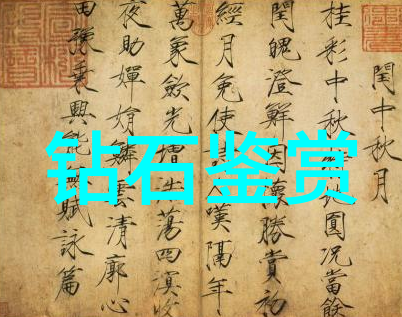 閏中秋月
桂彩中秋地圓況當餘
閏魄澄鮮因懷勝賞初
經月免使人嘆隔年
萬象斂光增蕩四溟收
夜助嬋娟鱗雲清廓心
田豫乘興能賦詠篇
钻石鉴赏